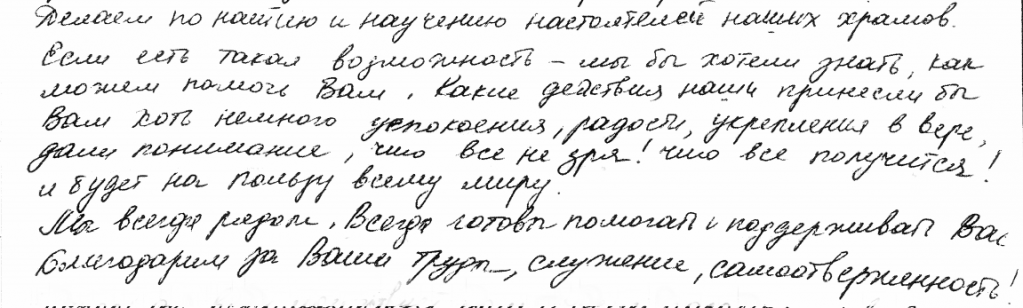 Делаем по наитию и научению настоятелей наших храмов.
Если есть такая возможность – мы бы хотели знать, как
можем помочь Вам. Какие действия наши принесли бы
Вам хоть немного успокоения, радости, укрепления в вере,
дали понимание, что все не зря! что все получится!
и будет на пользу всему миру.
Мы всегда рядом. Всегда готовы помогать и поддерживать Вас
Благодарим за Ваши труды, служение, самоотверженность!